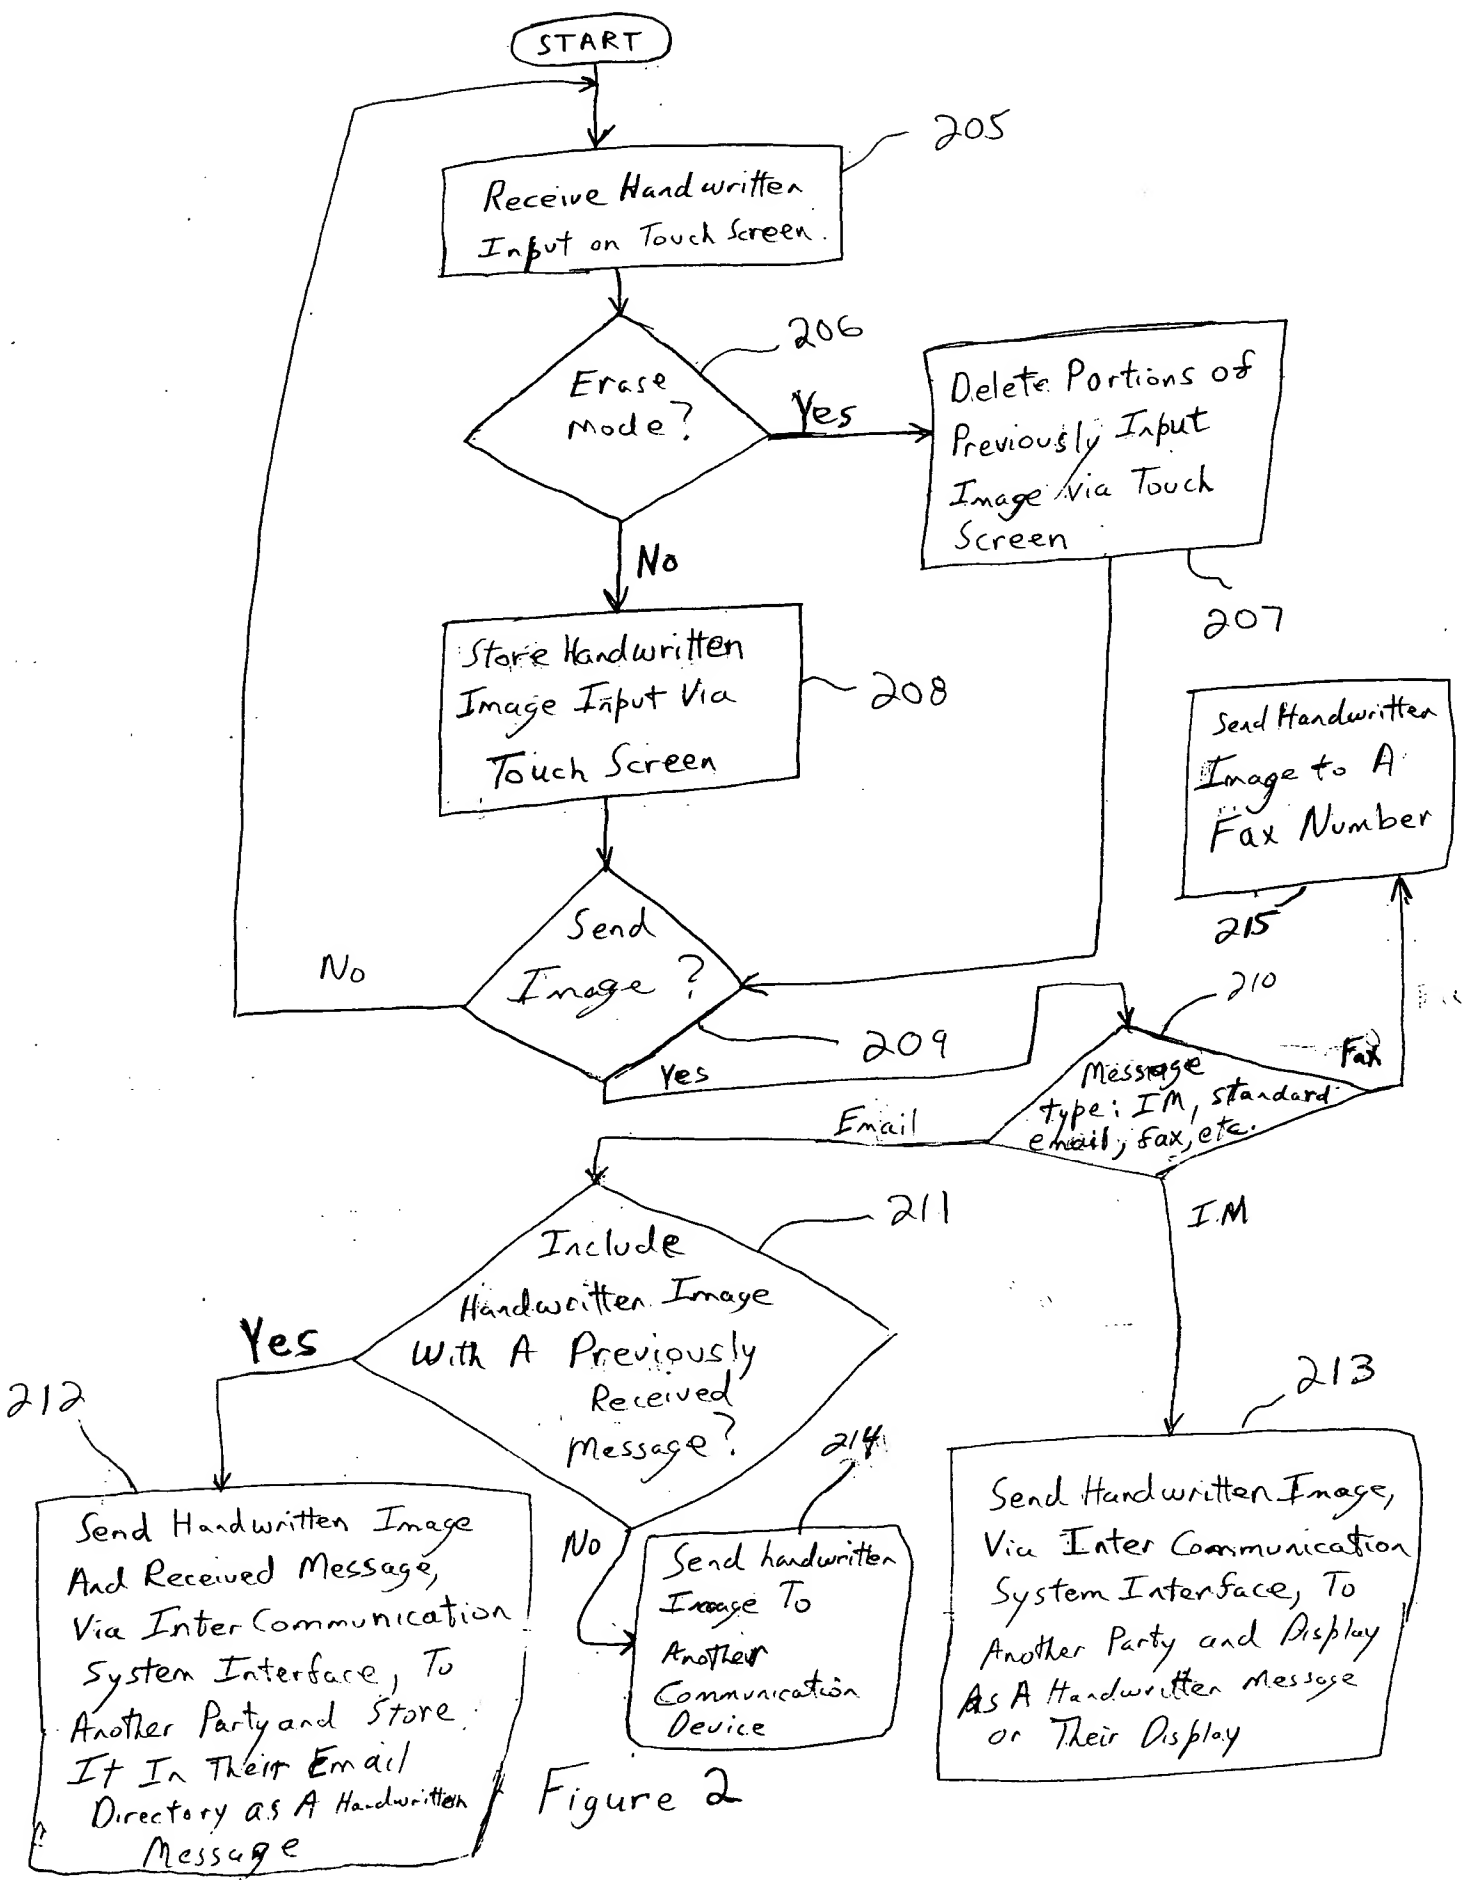 START
205
Receive Handwritten
Input on Touch Screen.
206
Erase
Mode?
Yes
Delete Portions of
Previously Input
Image via Touch
Screen
207
No
Store Handwritten
Image Input Via
Touch Screen
208
Send Handwritten
Image to A
Fax Number
215
Send
Image?
No
209
Yes
210
Message
type: IM, standard
email, fax, etc.
Fax
Email
IM
211
Include
Handwritten Image
With A Previously
Received
Message?
Yes
212
Send Handwritten Image
And Received Message,
Via Inter Communication
System Interface, To
Another Party and Store
It In Their Email
Directory as A Handwritten
Message
No
214
Send handwritten
Image To
Another
Communication
Device
213
Send Handwritten Image,
Via Inter Communication
System Interface, To
Another Party and Display
As A Handwritten Message
or Their Display
Figure 2